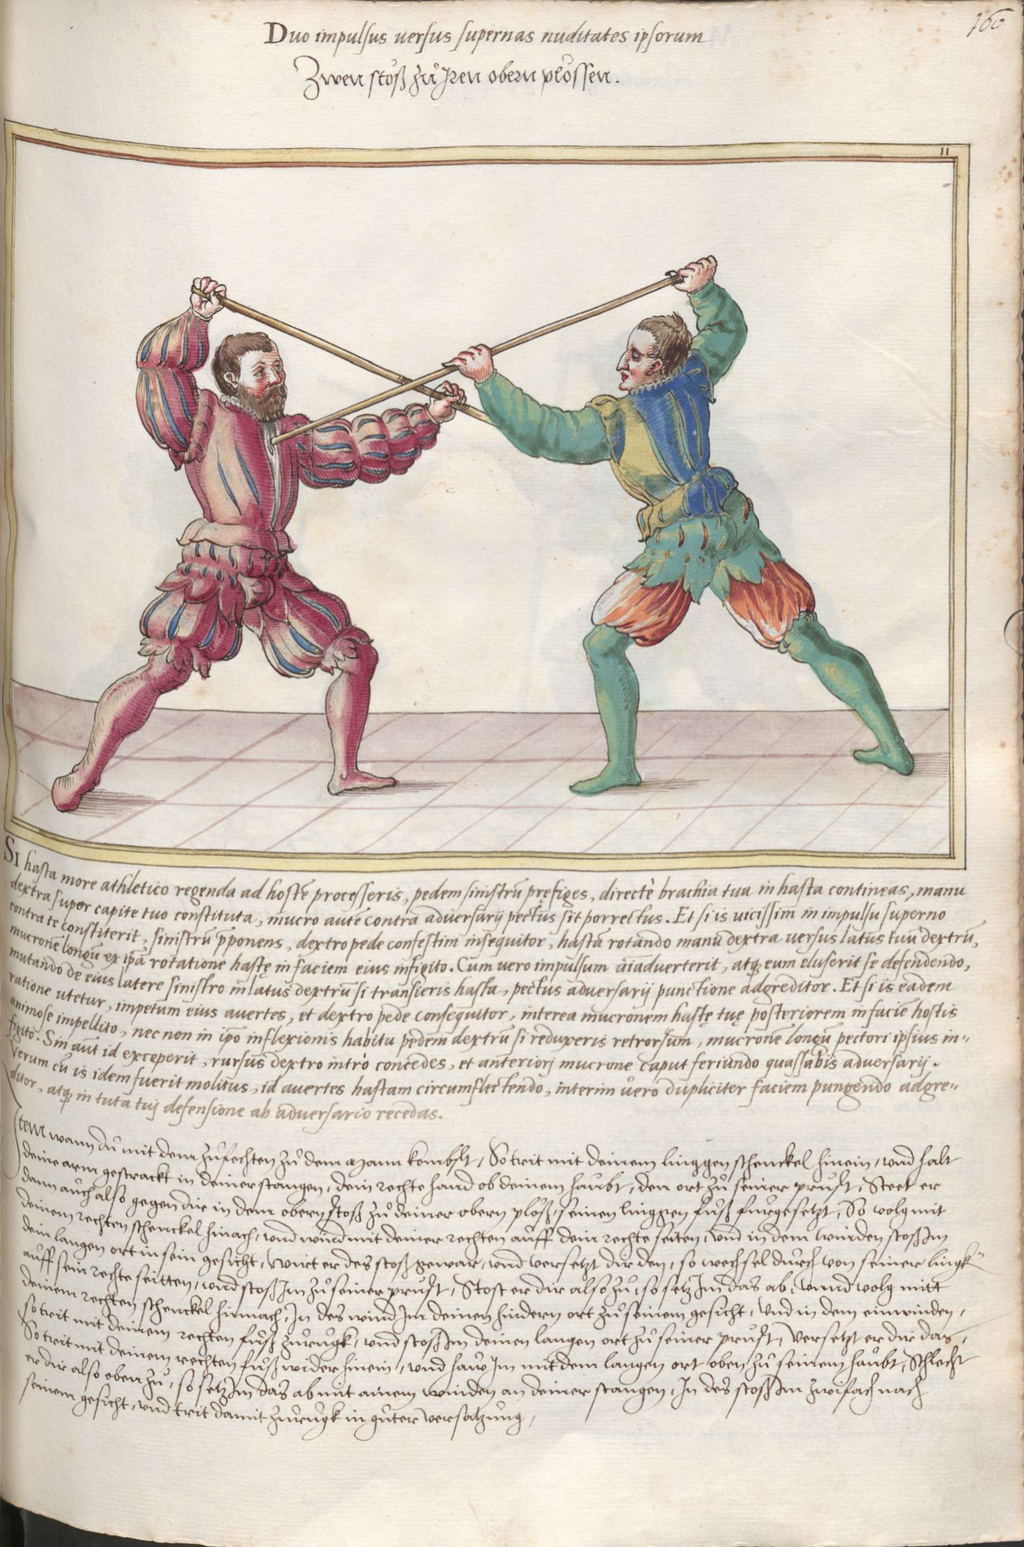 160
Duo impulsus versus supernas nuditates ipsorum
Zwen stöß zů Iren obern plössen.
11
SI hasta more athletico regenda ad hostē processeris, pedem sinistrū prefiges, directè brachia tua in hasta contineas, manu
dextra super capite tuo constituta, mucro aute contra adversarij pectus sit porrectus. Et si is vicissim in impulsu superno
contra te constiterit, sinistrū p̄ponens, dextro pede confestim insequitor, hastā rotando manū dextra versus latus tuū dextrū,
mucronē longū ex ipā rotatione hastę in faciem eius infigito. Cum vero impulsum aiadverterit, atq eum eluserit se defendendo,
mutando de eius latere sinistro in latus dextrū si transieris hasta, pectus adversarij punctione adgreditor. Et si is eadem
ratione utetur, impetum eius avertes, et dextro pede consequitor, interea mucronem hastę tuę posteriorem in faciē hostis
animose impellito, nec non in ipō inflexionis habitu pedem dextrū si reduxeris retrorsum, mucronē longū pectori ipsius in-
figito. Sin aūt id exceperit, rursus dextro intrò concedes, et anteriorj mucrone caput feriundo quassabis adversarij.
Verum cū is idem fuerit molitus, id avertes hastam circumflectendo, interim vero dupliciter faciem pungendo adgre-
ditor, atq in tuta tuj defensione ab adversario recedas.
Item wann du mit dem zůfechten zů dem Mann kombst, So trit mit deinem linggen schenckel hinein, vnd halt
deine arm gestrackt in deiner stangen, dein rechte hand ob deinem haubt, den ort zů seiner prust, Steet er
dann auch also gegen dir in dem obern stoß zů deiner obern plöß, seinen linggen fůß furgesetzt, So volg mit
deinem rechten schenckel hinach, vnd wind mit deiner rechten auff dein rechte seiten, vnd in dem winden stoß Im
dein langen ort in sein gesicht, Wirt er des stoß gewar, vnd versetzt dir den, so wechsel durch von seiner lingk
auff sein rechte seitten, vnd stoß Im zů seiner prust, Stost er dir also zů, so setz Im das ab, vnnd volg mitt
deinem rechten schenckel hinnach, In des wind Im deinen hindern ort zů seinem gesicht, Vnd in dem einwinden,
so trit mit deinem rechten fůß zůrugk, vnd stoß Im deinen langen ort zů seiner prust, Versetzt er dir das,
So trit mit deinem rechten fůß wider hinein, vnd haw Im mit dem langen ort oben zů seinem haubt, Schlecht
er dir also oben zů, so setz Im das ab mit ainem winden an deiner stangen, In des stoß Im zwifach nach
seinem gesicht, vnd trit damit zůrugk in gůter versatzung,